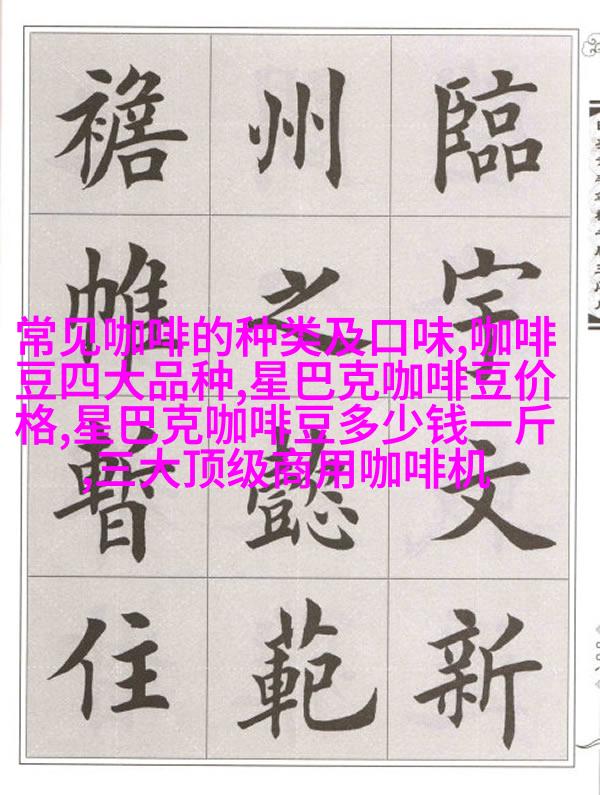 臨宇文新
州之懿範
襜帷暫住
常见咖啡的种类及口味,咖啡
豆四大品种,星巴克咖啡豆价
格,星巴克咖啡豆多少钱一斤
,三大顶级商用咖啡机